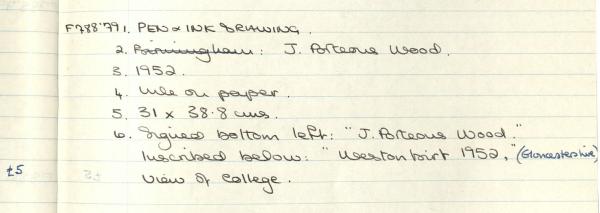 F788'79 1. PEN & INK DRAWING.
2. Birmingham: J. Porteous Wood.
3. 1952.
4. Ink on paper.
5. 31 x 38.8 cms.
6. Signed bottom left: "J. Porteous Wood."
Inscribed below: "Westonbirt 1952," (Gloucestershire)
£5 View of College.